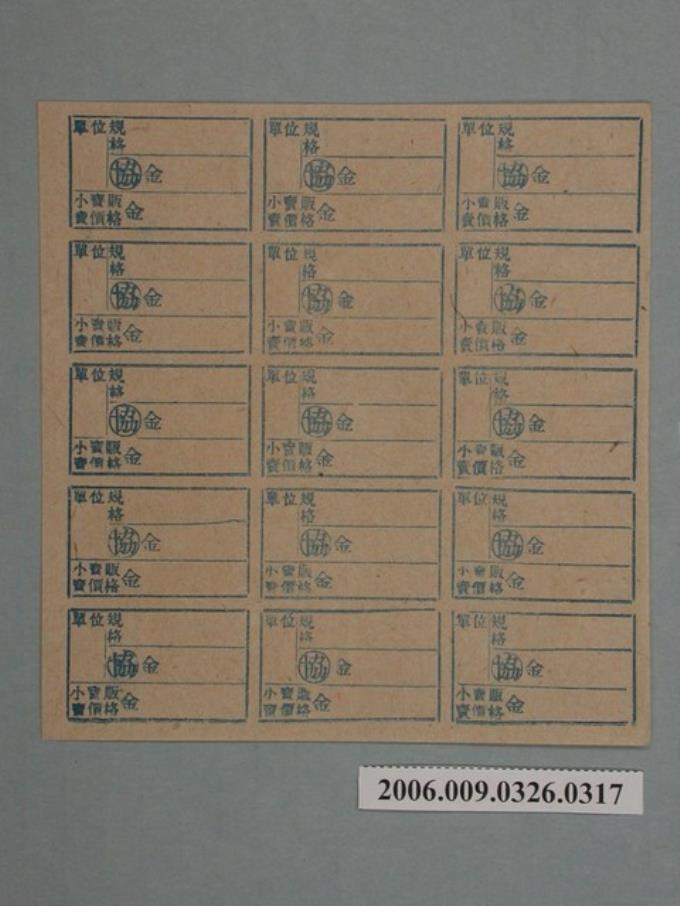 單位規
格
協金
小賣販
賣價格金
單位規
格
協金
小賣販
賣價格金
單位規
格
協金
小賣販
賣價格金
單位規
格
協金
小賣販
賣價格金
單位規
格
協金
小賣販
賣價格金
單位規
格
協金
小賣販
賣價格金
單位規
格
協金
小賣販
賣價格金
單位規
格
協金
小賣販
賣價格金
單位規
格
協金
小賣販
賣價格金
單位規
格
協金
小賣販
賣價格金
單位規
格
協金
小賣販
賣價格金
單位規
格
協金
小賣販
賣價格金
單位規
格
協金
小賣販
賣價格金
單位規
格
協金
小賣販
賣價格金
單位規
格
協金
小賣販
賣價格金
2006.009.0326.0317